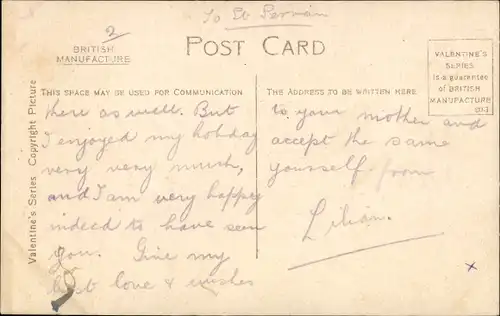 2
To St Servan
BRITISH
MANUFACTURE
POST CARD
VALENTINE'S
SERIES
is a guarantee
of BRITISH
MANUFACTURE
THIS SPACE MAY BE USED FOR COMMUNICATION
THE ADDRESS TO BE WRITTEN HERE
Valentine's Series Copyright Picture
there as well. But
I enjoyed my holiday
very very much,
and I am very happy
indeed to have seen
you. Give my
best love & wishes
to your mother and
accept the same
yourself from
Lilian.
x